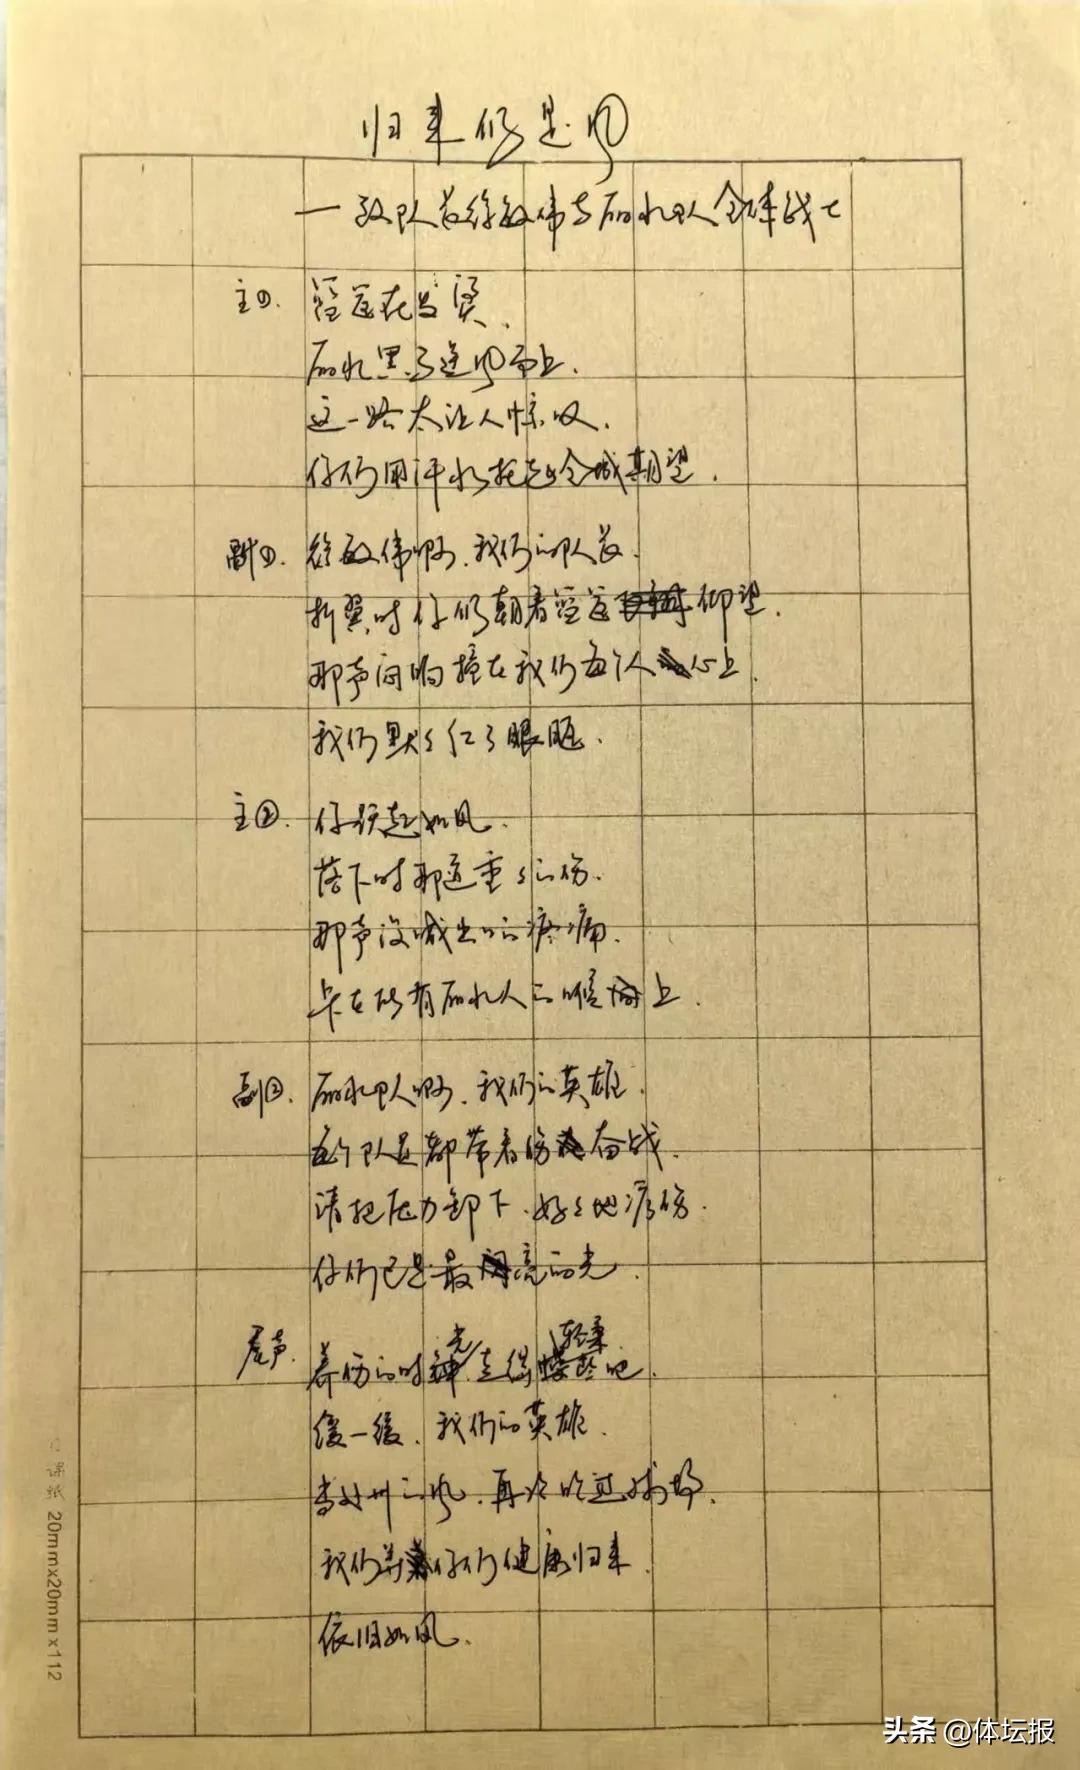 归来仍是风
—致队长徐敏伟与丽水队全体战士
主①. 篮筐在发烫、
丽水黑马逆风而上.
这一路太让人惊叹.
你们用汗水托起全城期望.
副①. 徐敏伟啊、我们的队长.
折翼时你仍朝着篮筐仰望.
那声闷响撞在我们每个人心上.
我们默默红了眼眶.
主②. 你跃起如风.
落下时那道重重的伤.
那声没喊出的疼痛.
卡在所有丽水人的喉上.
副②. 丽水队啊、我们的英雄.
每个队员都带着伤奋战.
请把压力卸下、好好地疗伤.
你们已是最亮的光.
尾声. 养伤的时光走得轻柔吧.
缓一缓、我们的英雄.
当处州的风、再次吹过球场.
我们等你们健康归来.
依旧如风.
信笺纸 20mmx20mm x112
头条 @体坛报